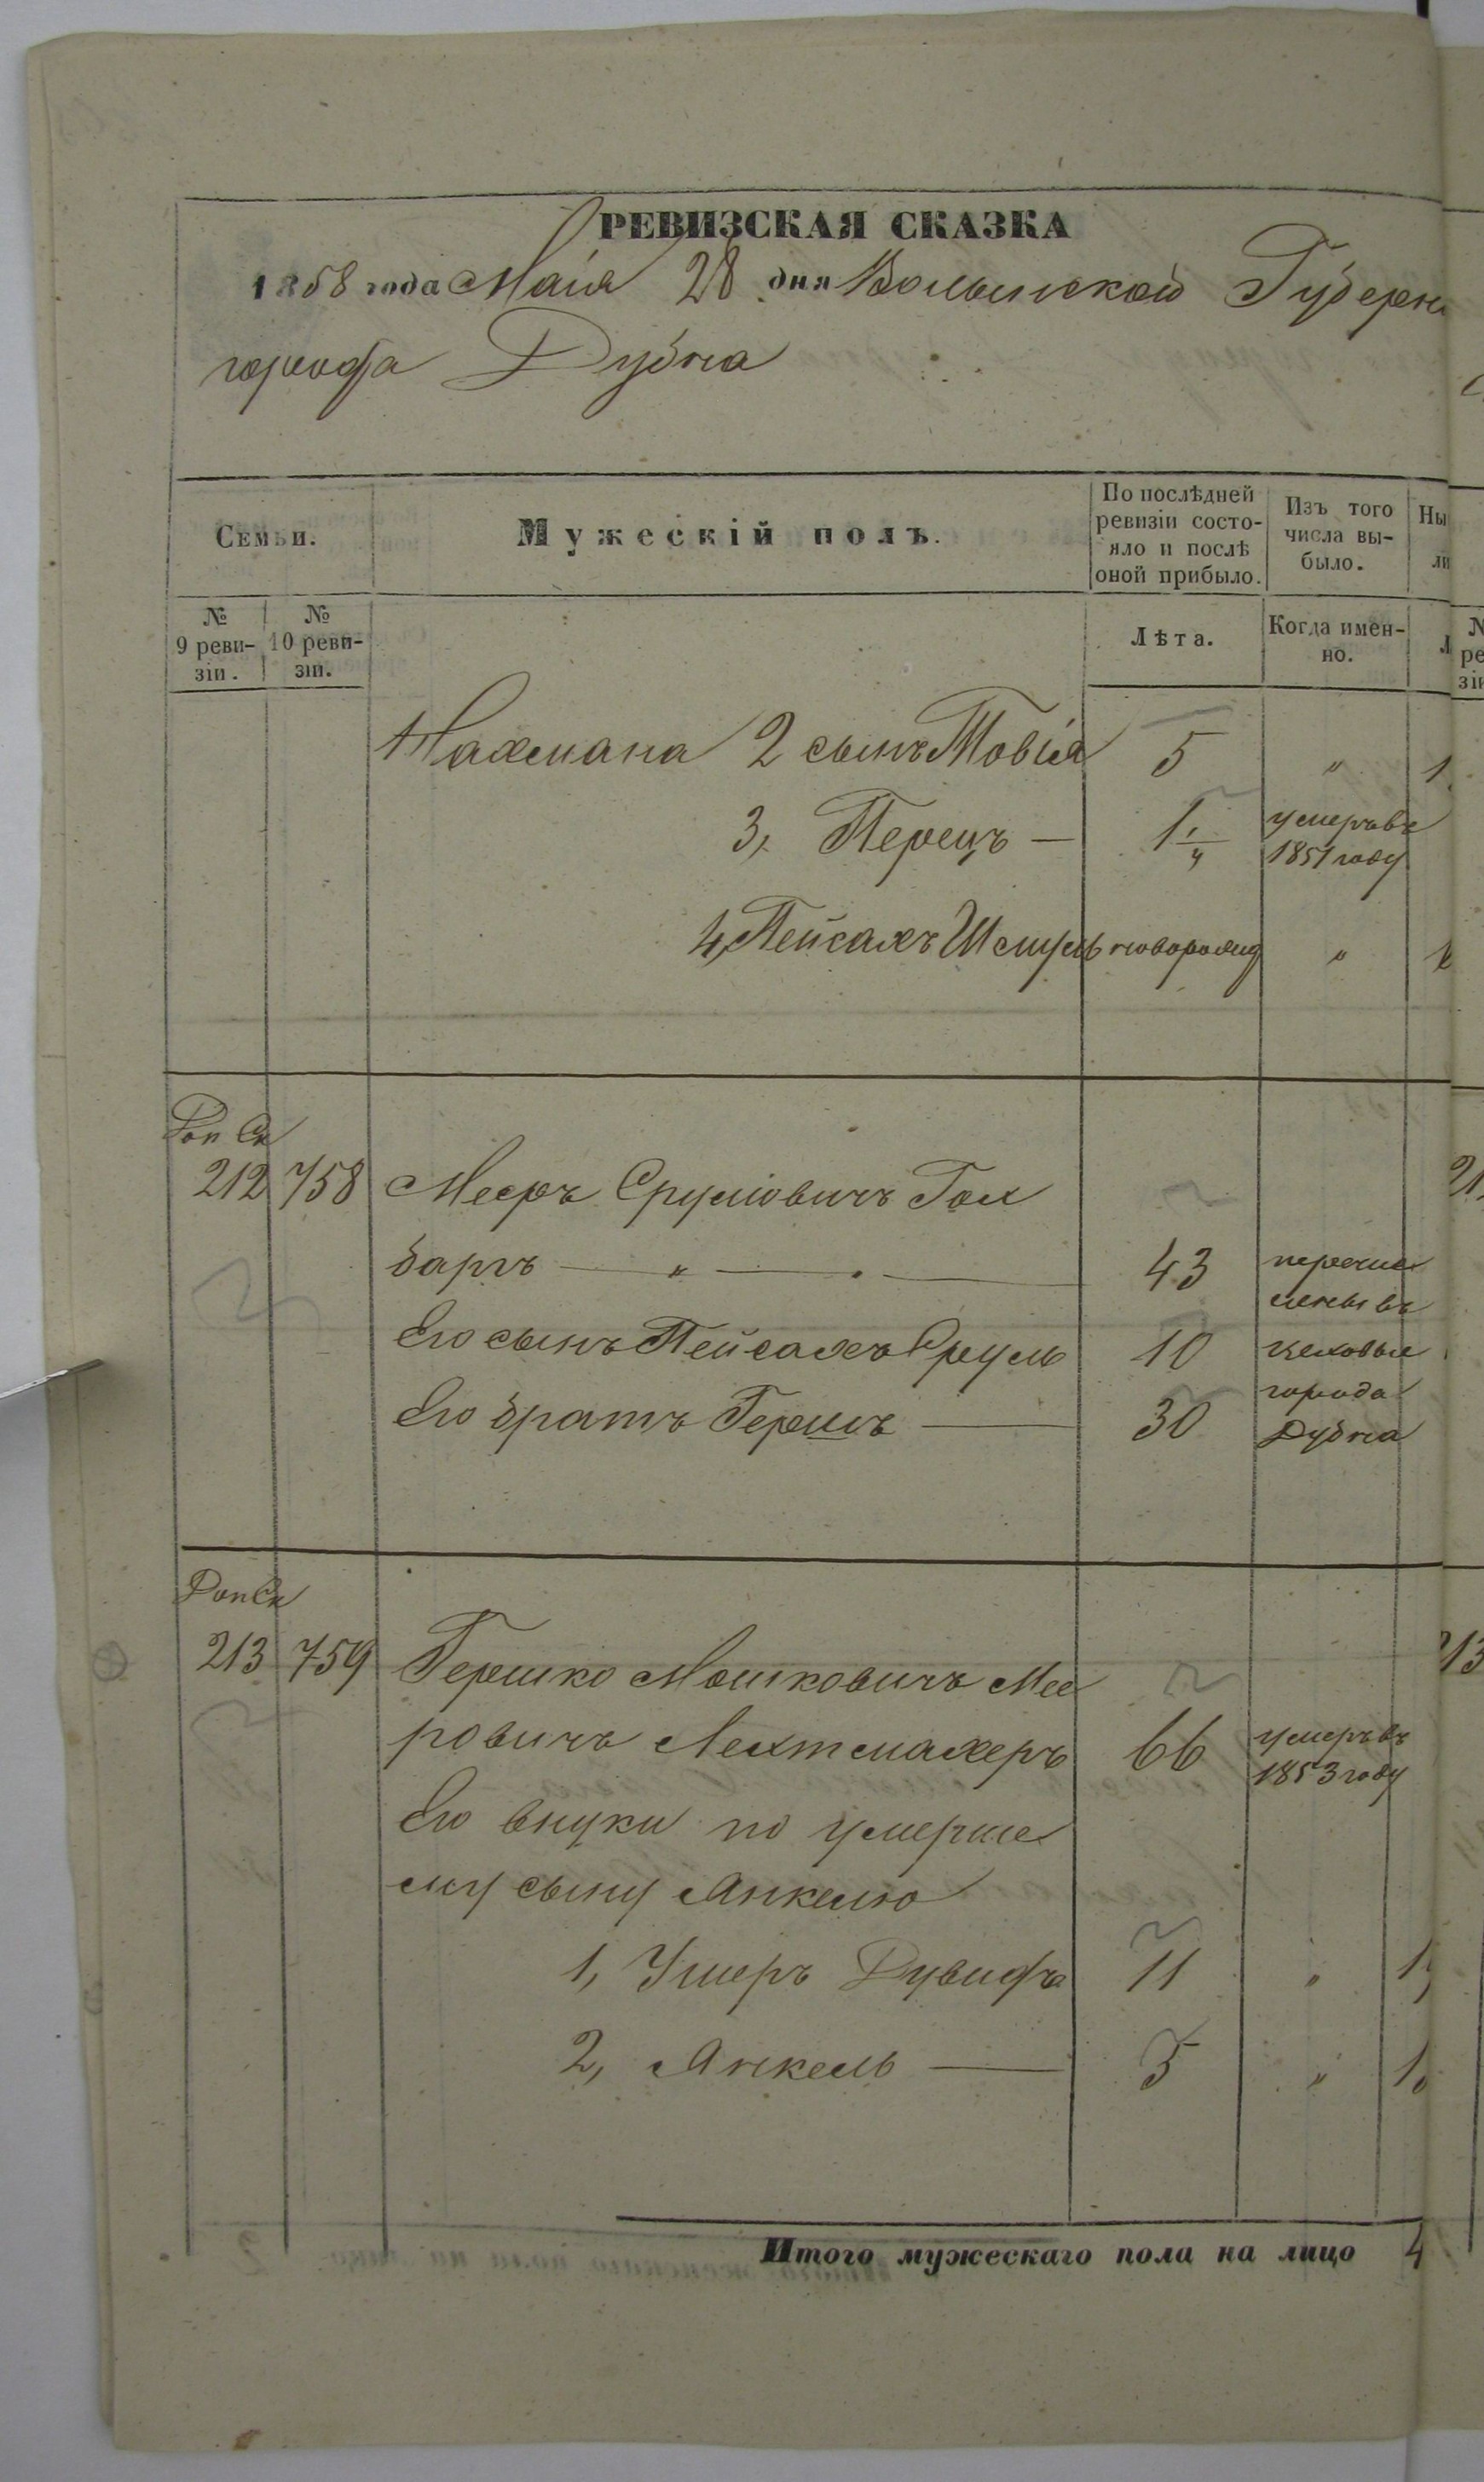 РЕВИЗСКАЯ СКАЗКА
1858 года Маія 28 дня Волынской Губерн
города Дубна
Семьи.
Мужескій полъ.
По послѣдней
ревизіи состо-
яло и послѣ
оной прибыло.
Изъ того
числа вы-
было.
Ны
ли
№
9 реви-
зіи.
№
10 реви-
зіи.
Лѣта.
Когда имен-
но.
Нахмана 2 сынъ Товія 5 " 1
3, Перецъ — 1 1/4 умеръ въ
1851 году
4, Пейсахъ Шмуль новорожд "
Доп Ск
212 758 Мееръ Сруліовичъ Гол
баргъ — " — 43 перечис
лены въ
Его сынъ Пейсахъ Сруль 10 цеховые
города
Его братъ Гершъ — 30 Дубна
Доп Ск
213 759 Гершко Мошковичъ Мее
ровичъ Лехтмахеръ 66 умеръ въ
1853 году
Его внуки по умерше
му сыну Анкелю
1, Ушеръ Дувидъ 11 "
2, Анкель — 5 "
Итого мужескаго пола на лицо 4